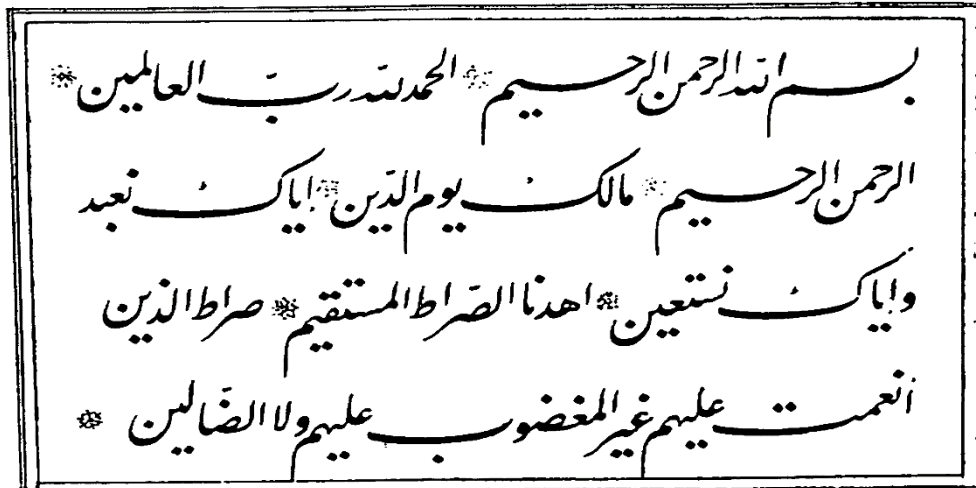 بسم الله الرحمن الرحيم * الحمد لله ربّ العالمين *
الرحمن الرحيم * مالك يوم الدّين * إياك نعبد
وإياك نستعين * اهدنا الصّراط المستقيم * صراط الذين
أنعمت عليهم غير المغضوب عليهم ولا الضّالين *